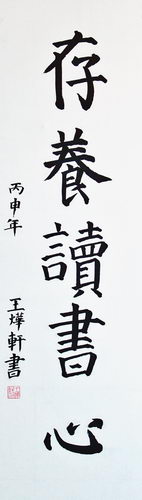 存養讀書心
丙申年
王燁軒書